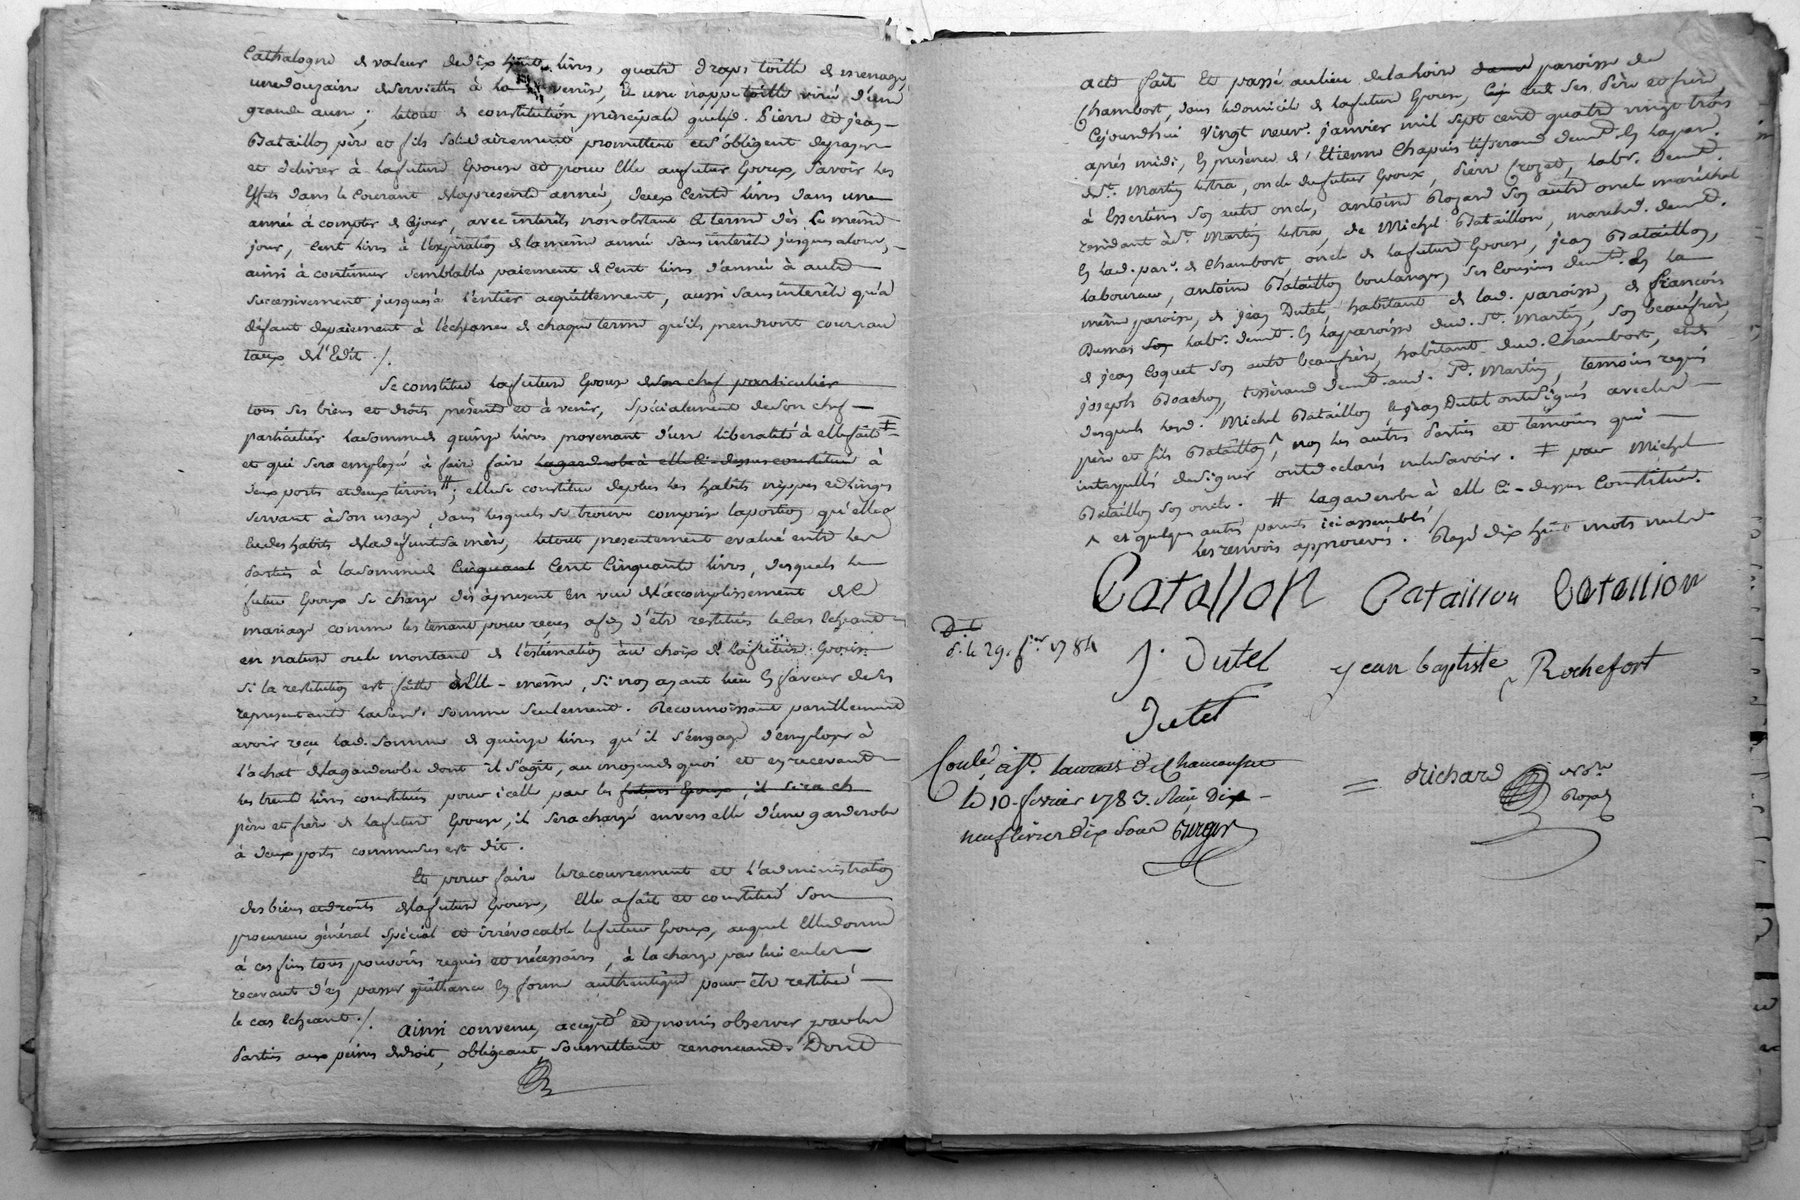 Cathalogne de valeur de dix huit livres, quatre draps toille de menage,
une douzaine de serviettes à la venise, et une nappe toille virée d'une
grande aune ; le tout de constitution principale que led. Pierre et jean
Bataillon père et fils solidairement promettent et s'obligent de payer
et délivrer à la future Epouse et pour elle au futur Epoux, savoir les
Effets dans le courant de la presente année, deux Cents livres dans une
année à compter de Cejour, avec interêts nonobstant le terme dès le même
jour, Cent livres à l'expiration de la même année sans interêts jusques alors,
ainsi à continuer semblable paiement de Cent livres d'année à autre
successivement jusques à l'entier acquittement, aussi sans interêts qu'à
défaut de paiement à l'échéance de chaque terme qu'ils prendront cours au
taux de l'Edit ./.
Se constitue la future Epouse de son chef particulier
tous ses biens et droits présents et à venir, spécialement de son chef
particulier la somme de quinze livres provenant d'une liberalité à elle faite ‡
et qui sera employée à faire faire la garderobe à elle ci-dessus constituée à
deux ports et deux tiroirs # ; elle se constitue de plus les habits nippes et linges
servant à son usage, dans lesquels se trouve comprise la portion qu'elle a
eu des habits de la défunte sa mère, le tout presentement evalué entre les
Parties à la somme de Cent Cinquante livres, desquels le
futur Epoux se charge dès àpresent en vue de l'accomplissement de Ce
mariage comme les tenant pour reçus afin d'être restitués le Cas Echeant
en nature ou le montant de l'estimation au choix de la future Epouse
si la restitution est faitte à Elle-même, si non ayant lieu En faveur de ses
representants lad. somme seulement. Reconnoissant pareillement
avoir reçu lad. somme de quinze livres qu'il s'engage d'employer à
l'achat de la garderobe dont il s'agit, au moyen de quoi et en recevant
les trente livres constituées pour icelle par les futurs Epoux, il sera ch
père et frère de la future Epouse, il sera chargé envers elle d'une garderobe
à deux ports comme dessus est dit.
Et pour faire le recouvrement et l'administration
des biens et droits de la future Epouse, Elle a fait et constitué son
procureur général spécial et irrévocable le futur Epoux, auquel Elle donne
à ces fins tous pouvoirs requis et nécessaires, à la charge par lui en les
recevant d'en passer quittance En forme authentique pour être restitué
le cas Echeant ./. Ainsi convenu, accepté et promis observer par les
Parties aux peines de droit, obligeant, soumettant renonceant. Dont
acte fait Et passé au lieu de la hoire paroisse de
Chambost, dans le domicile de la future Epouse, et de ses Père et frère,
Cejourdhui Vingt neuf janvier mil sept cent quatre vingt trois
après midi, En présence d'Etienne Chapuis tisserand demt. En la par.
de St. Martin Lestra, oncle du futur Epoux, Pierre Crozet, labr. demt.
à Essertines son autre oncle, antoine Royard son autre oncle maréchal
residant à St. Martin Lestra, de Michel Bataillon, marchd. demt.
En lad. par. de Chambost oncle de la future Epouse, jean Bataillon,
laboureur, antoine Bataillon boulanger, ses Cousins demt. En la
même paroisse, de jean Dutel habitant de lad. paroisse, de françois
Dumas labr. demt. En la paroisse dud. St. Martin, son beaufrère,
de jean Coquet son autre beaufrère, habitant dud. Chambost, et de
joseph tisserand demt. aud. St. Martin, temoins requis
desquels led. Michel Bataillon et jean Dutel ont signés avec les
père et fils Bataillon, ^ non les autres Parties et temoins qui
interpellés de signer ont déclarés ne le savoir. ‡ par Michel
Bataillon son oncle. # la garderobe à elle Ci-dessus Constituée.
^ et quelques autres parents ici assemblés /
les renvois approuvés. Rayé dix huit mots nuls
Batallon Bataillon Batallion
D. le 29. fer. 1784
J. Dutel jean baptiste Rochefort
Dutel
Coulé à St. Laurent de Chamousset
le 10 fevrier 1783. Reçu Dix
neuf livres dix sous
= Richard
Nore.
Royal